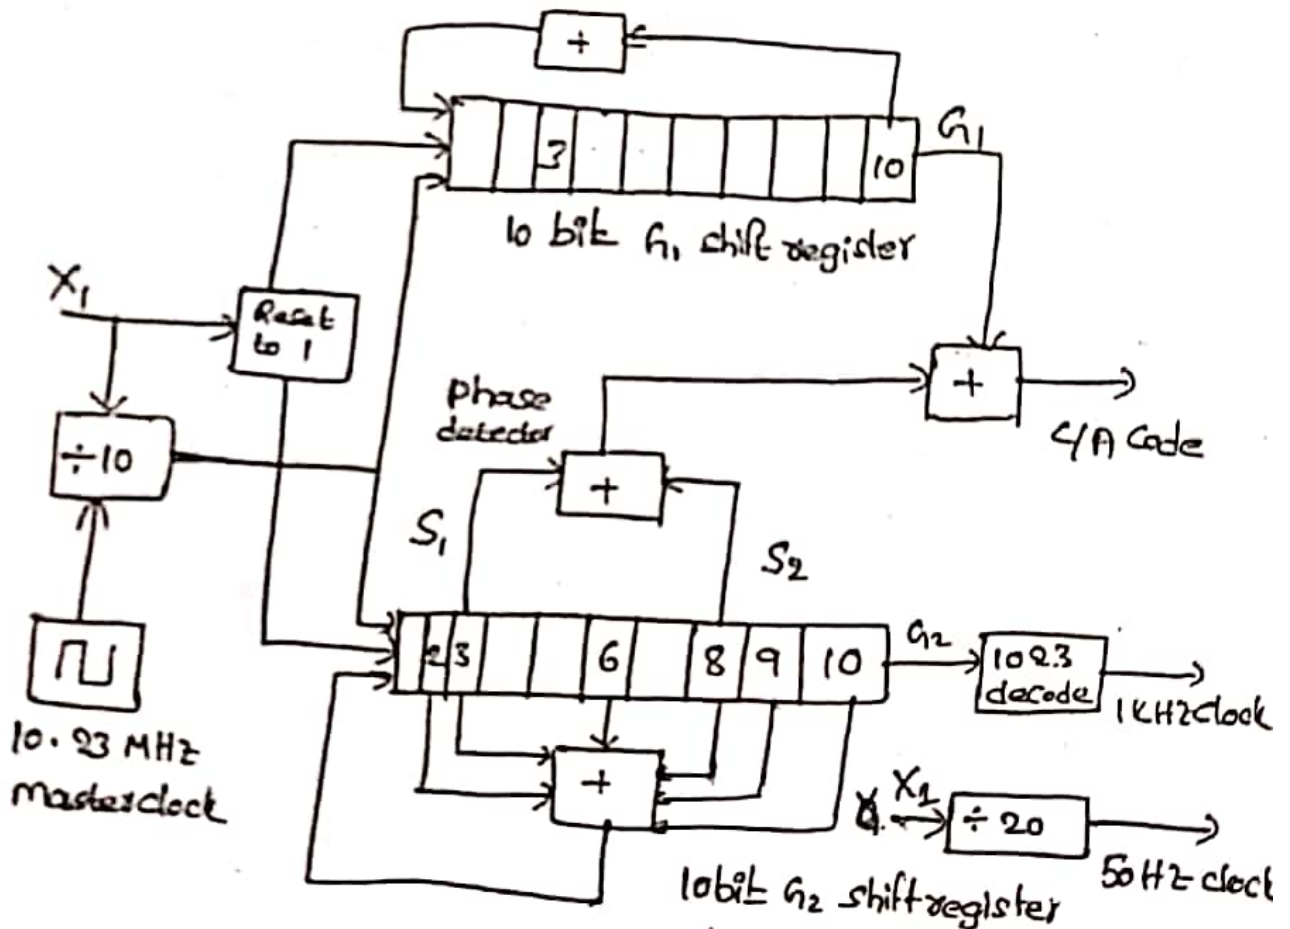 +
3
10
G1
10 bit G1 shift register
X1
Reset
to 1
phase
detector
+
+
C/A Code
÷10
S1
S2
2 3 6 8 9 10
G2
1023
decode
1KHZ clock
10.23 MHz
Masterclock
+
X1
÷ 20
50HZ clock
10bit G2 shift register